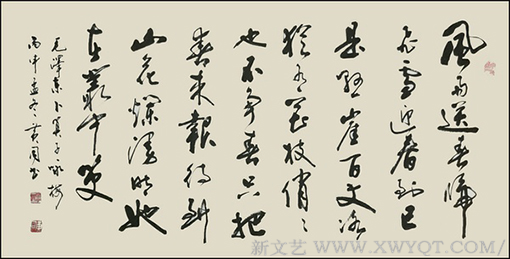 風雨送春歸
飛雪迎春到已
是懸崖百丈冰
猶有花枝俏〻
也不争春只把
春來報待到
山花爛漫時她
在叢中笑
毛澤東卜算子詠梅
丙申孟冬黄
新文艺 WWW.XWYQT.COM